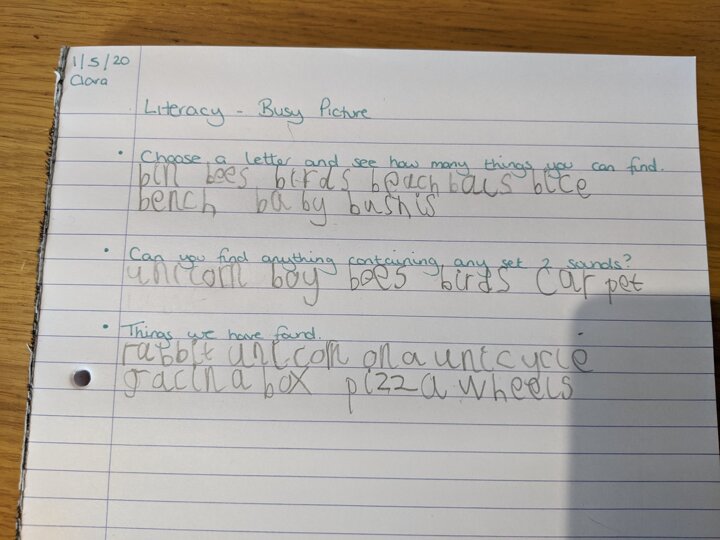 1/5/20
Clara
Literacy - Busy Picture
• Choose a letter and see how many things you can find.
bin bees birds beach bals bice
bench baby bushis
• Can you find anything containing any set 2 sounds?
unicorn boy bees birds Carpet
• Things we have found.
rabbit unicorn on a unicycle
in a box pizza wheels